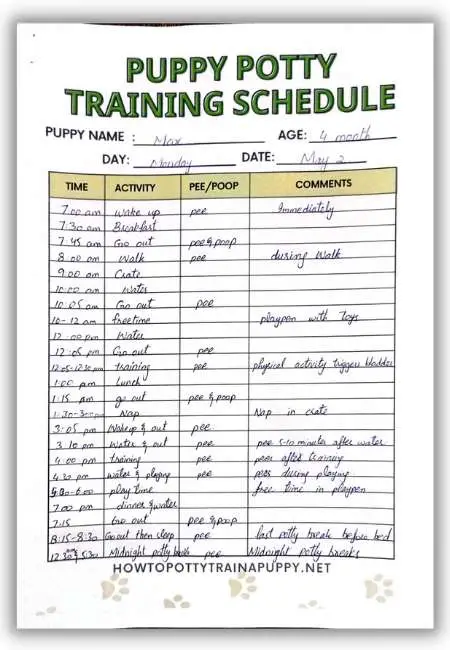 PUPPY POTTY
TRAINING SCHEDULE
PUPPY NAME : Max AGE: 4 month
DAY: Monday DATE: May 2
TIME ACTIVITY PEE/POOP COMMENTS
7:00 am Wake up pee Immediately
7:30 am Breakfast
7:45 am Go out pee & poop
8:00 am Walk pee during walk
9:00 am Crate
10:00 am Water
10:05 am Go out pee
10-12 am freetime playpen with Toys
12:00 pm Water
12:05 pm Go out pee
12:05-12:30 pm training pee physical activity triggers bladder
1:00 pm Lunch
1:15 am go out pee & poop
1:30-3:00 pm Nap Nap in crate
3:05 pm Wakeup & out pee
3:10 pm Water & out pee pee 5-10 minutes after water
4:00 pm training pee pees after training
4:30 pm water & playing pee pees during playing
5:30-6:00 play time free time in playpen
7:00 pm dinner & water
7:15 Go out pee & poop
8:15-8:30 Go out then sleep pee last potty break before bed
12:30 & 5:30 Midnight potty break pee Midnight potty breaks
HOWTOPOTTYTRAINAPUPPY.NET